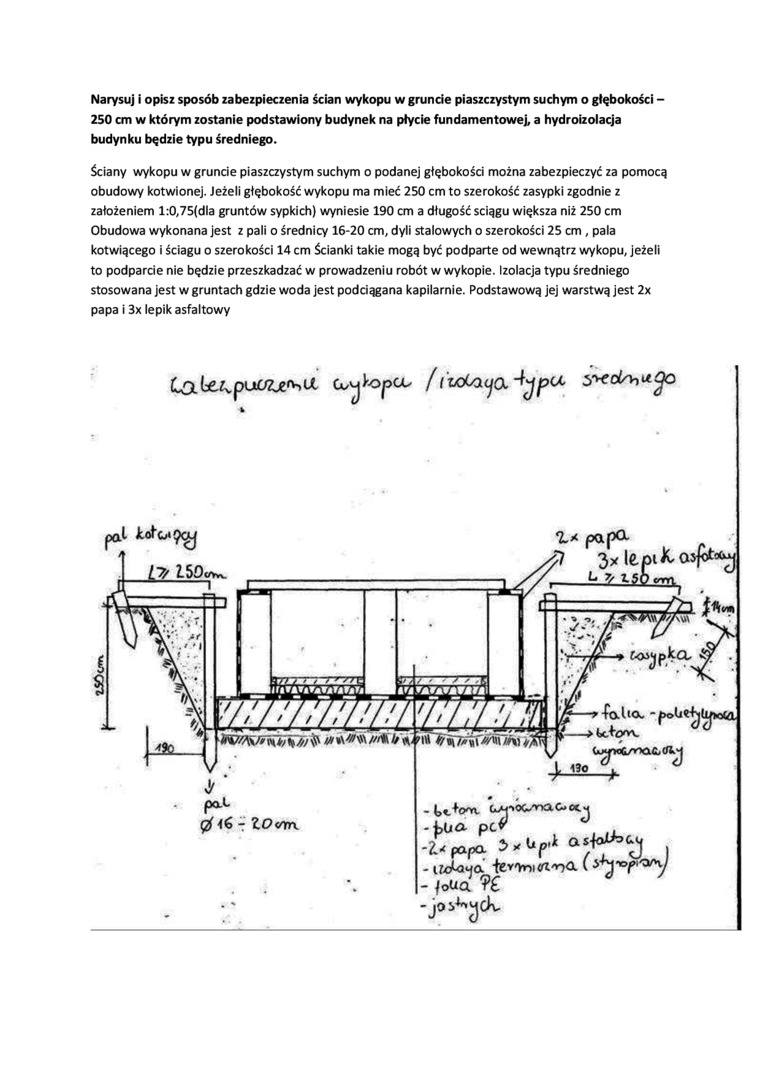 Narysuj i opisz sposób zabezpieczenia ścian wykopu w gruncie piaszczystym suchym o głębokości –
250 cm w którym zostanie podstawiony budynek na płycie fundamentowej, a hydroizolacja
budynku będzie typu średniego.
Ściany wykopu w gruncie piaszczystym suchym o podanej głębokości można zabezpieczyć za pomocą
obudowy kotwionej. Jeżeli głębokość wykopu ma mieć 250 cm to szerokość zasypki zgodnie z
założeniem 1:0,75(dla gruntów sypkich) wyniesie 190 cm a długość sciągu większa niż 250 cm
Obudowa wykonana jest z pali o średnicy 16-20 cm, dyli stalowych o szerokości 25 cm , pala
kotwiącego i ściagu o szerokości 14 cm Ścianki takie mogą być podparte od wewnątrz wykopu, jeżeli
to podparcie nie będzie przeszkadzać w prowadzeniu robót w wykopie. Izolacja typu średniego
stosowana jest w gruntach gdzie woda jest podciągana kapilarnie. Podstawową jej warstwą jest 2x
papa i 3x lepik asfaltowy
Zabezpieczenie wykopu / izolacja typu średniego
pal kotwiący
L⩾ 250cm
2x papa
3x lepik asfaltowy
L ⩾ 250 cm
14cm
250cm
zasypka
150
folia - polietylenowa
beton
wyrównawczy
190
190
pal
Ø 16 ÷ 20cm
- beton wyrównawczy
- płia pcv
- 2x papa 3x lepik asfaltowy
- izolacja termiczna (styropian)
- folia PE
- jastrych